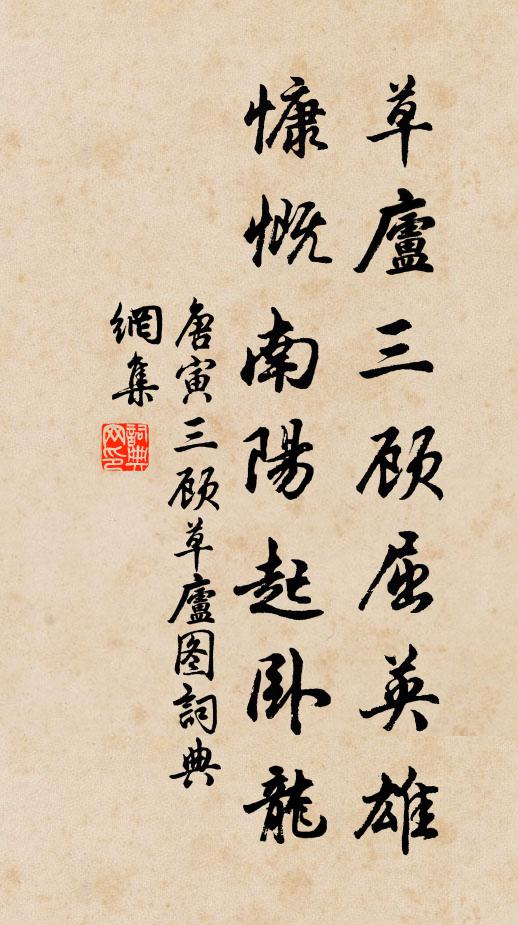 草廬三顾屈英雄
慷慨南陽起卧龍
唐寅三顾草廬图詞典
網集
詞典網印